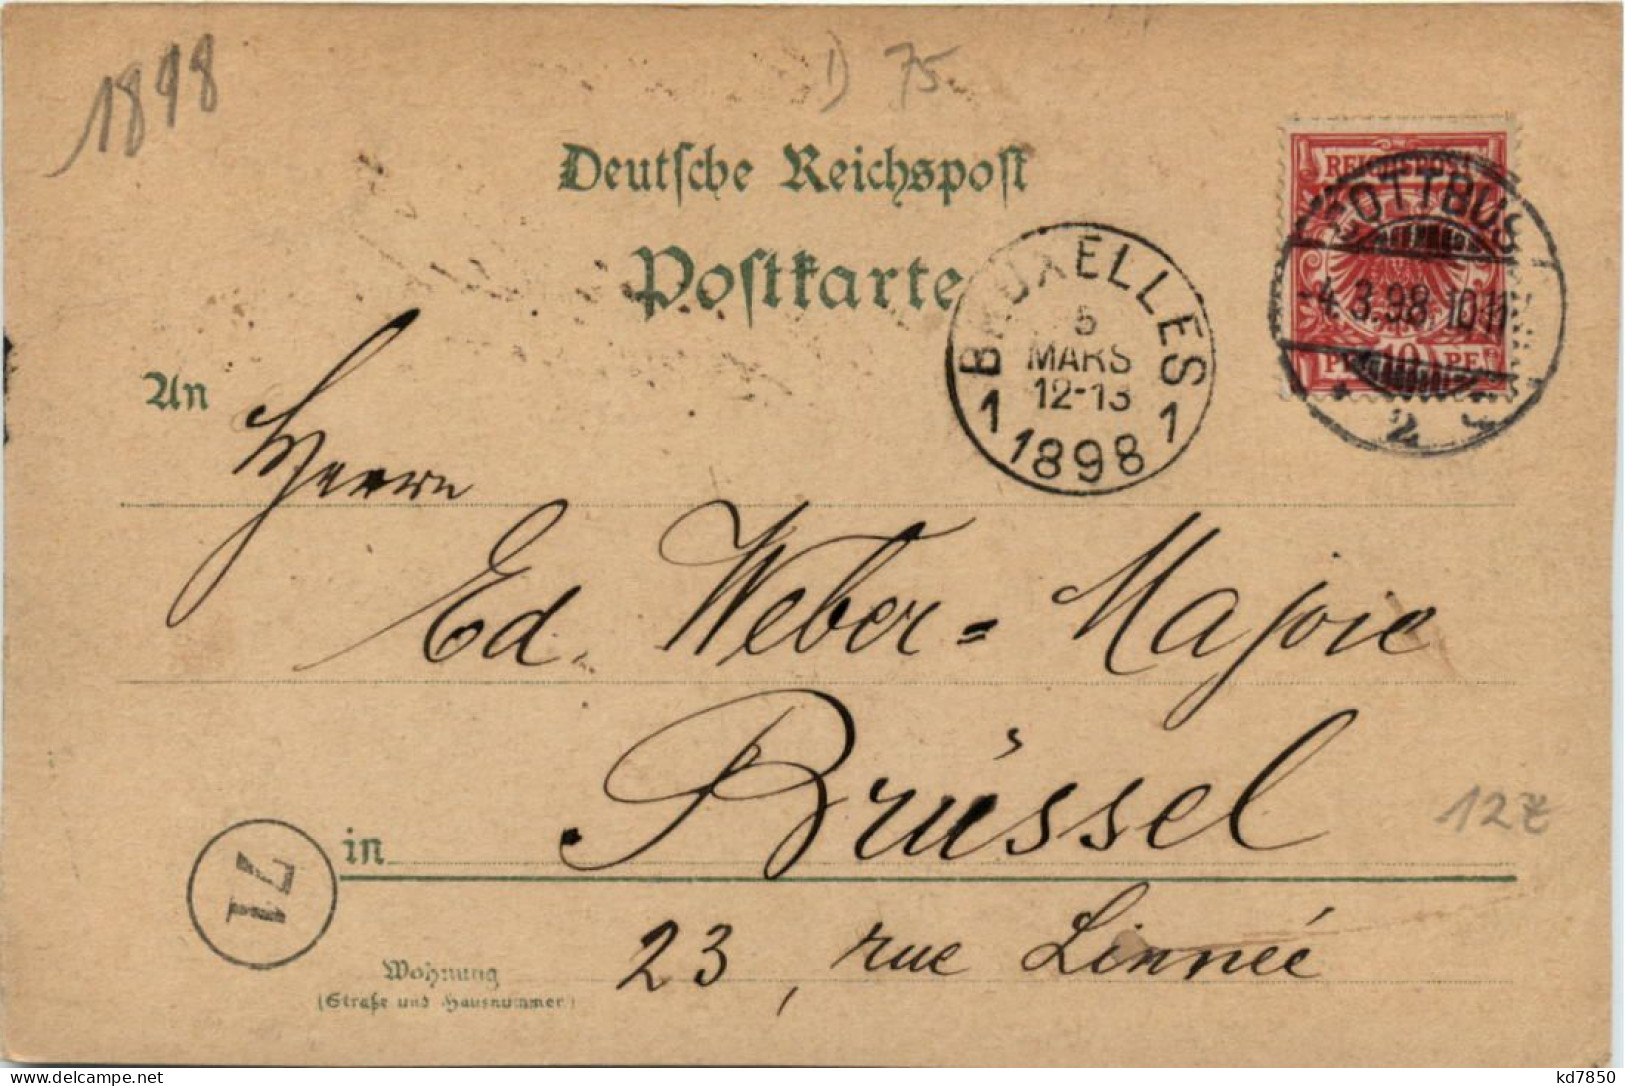 1898
D 75
Deutsche Reichspost
Postkarte
REICHSPOST
COTTBUS
-4.3.98. 10-11
10
* 2
BRUXELLES
5
MARS
12-13
1 1898 1
An
Herrn
Ed. Weber-Majoie
in Brüssel
12 Z
71
23, rue Linnée
Wohnung
(Straße und Hausnummer)
kd7850